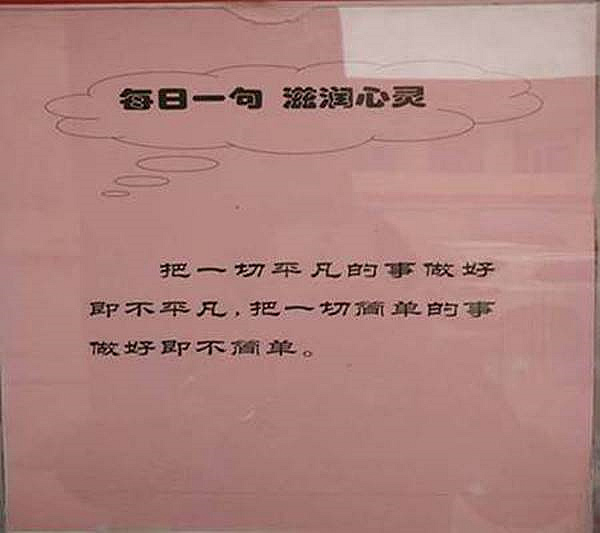 每日一句 滋润心灵
把一切平凡的事做好
即不平凡,把一切简单的事
做好即不简单。